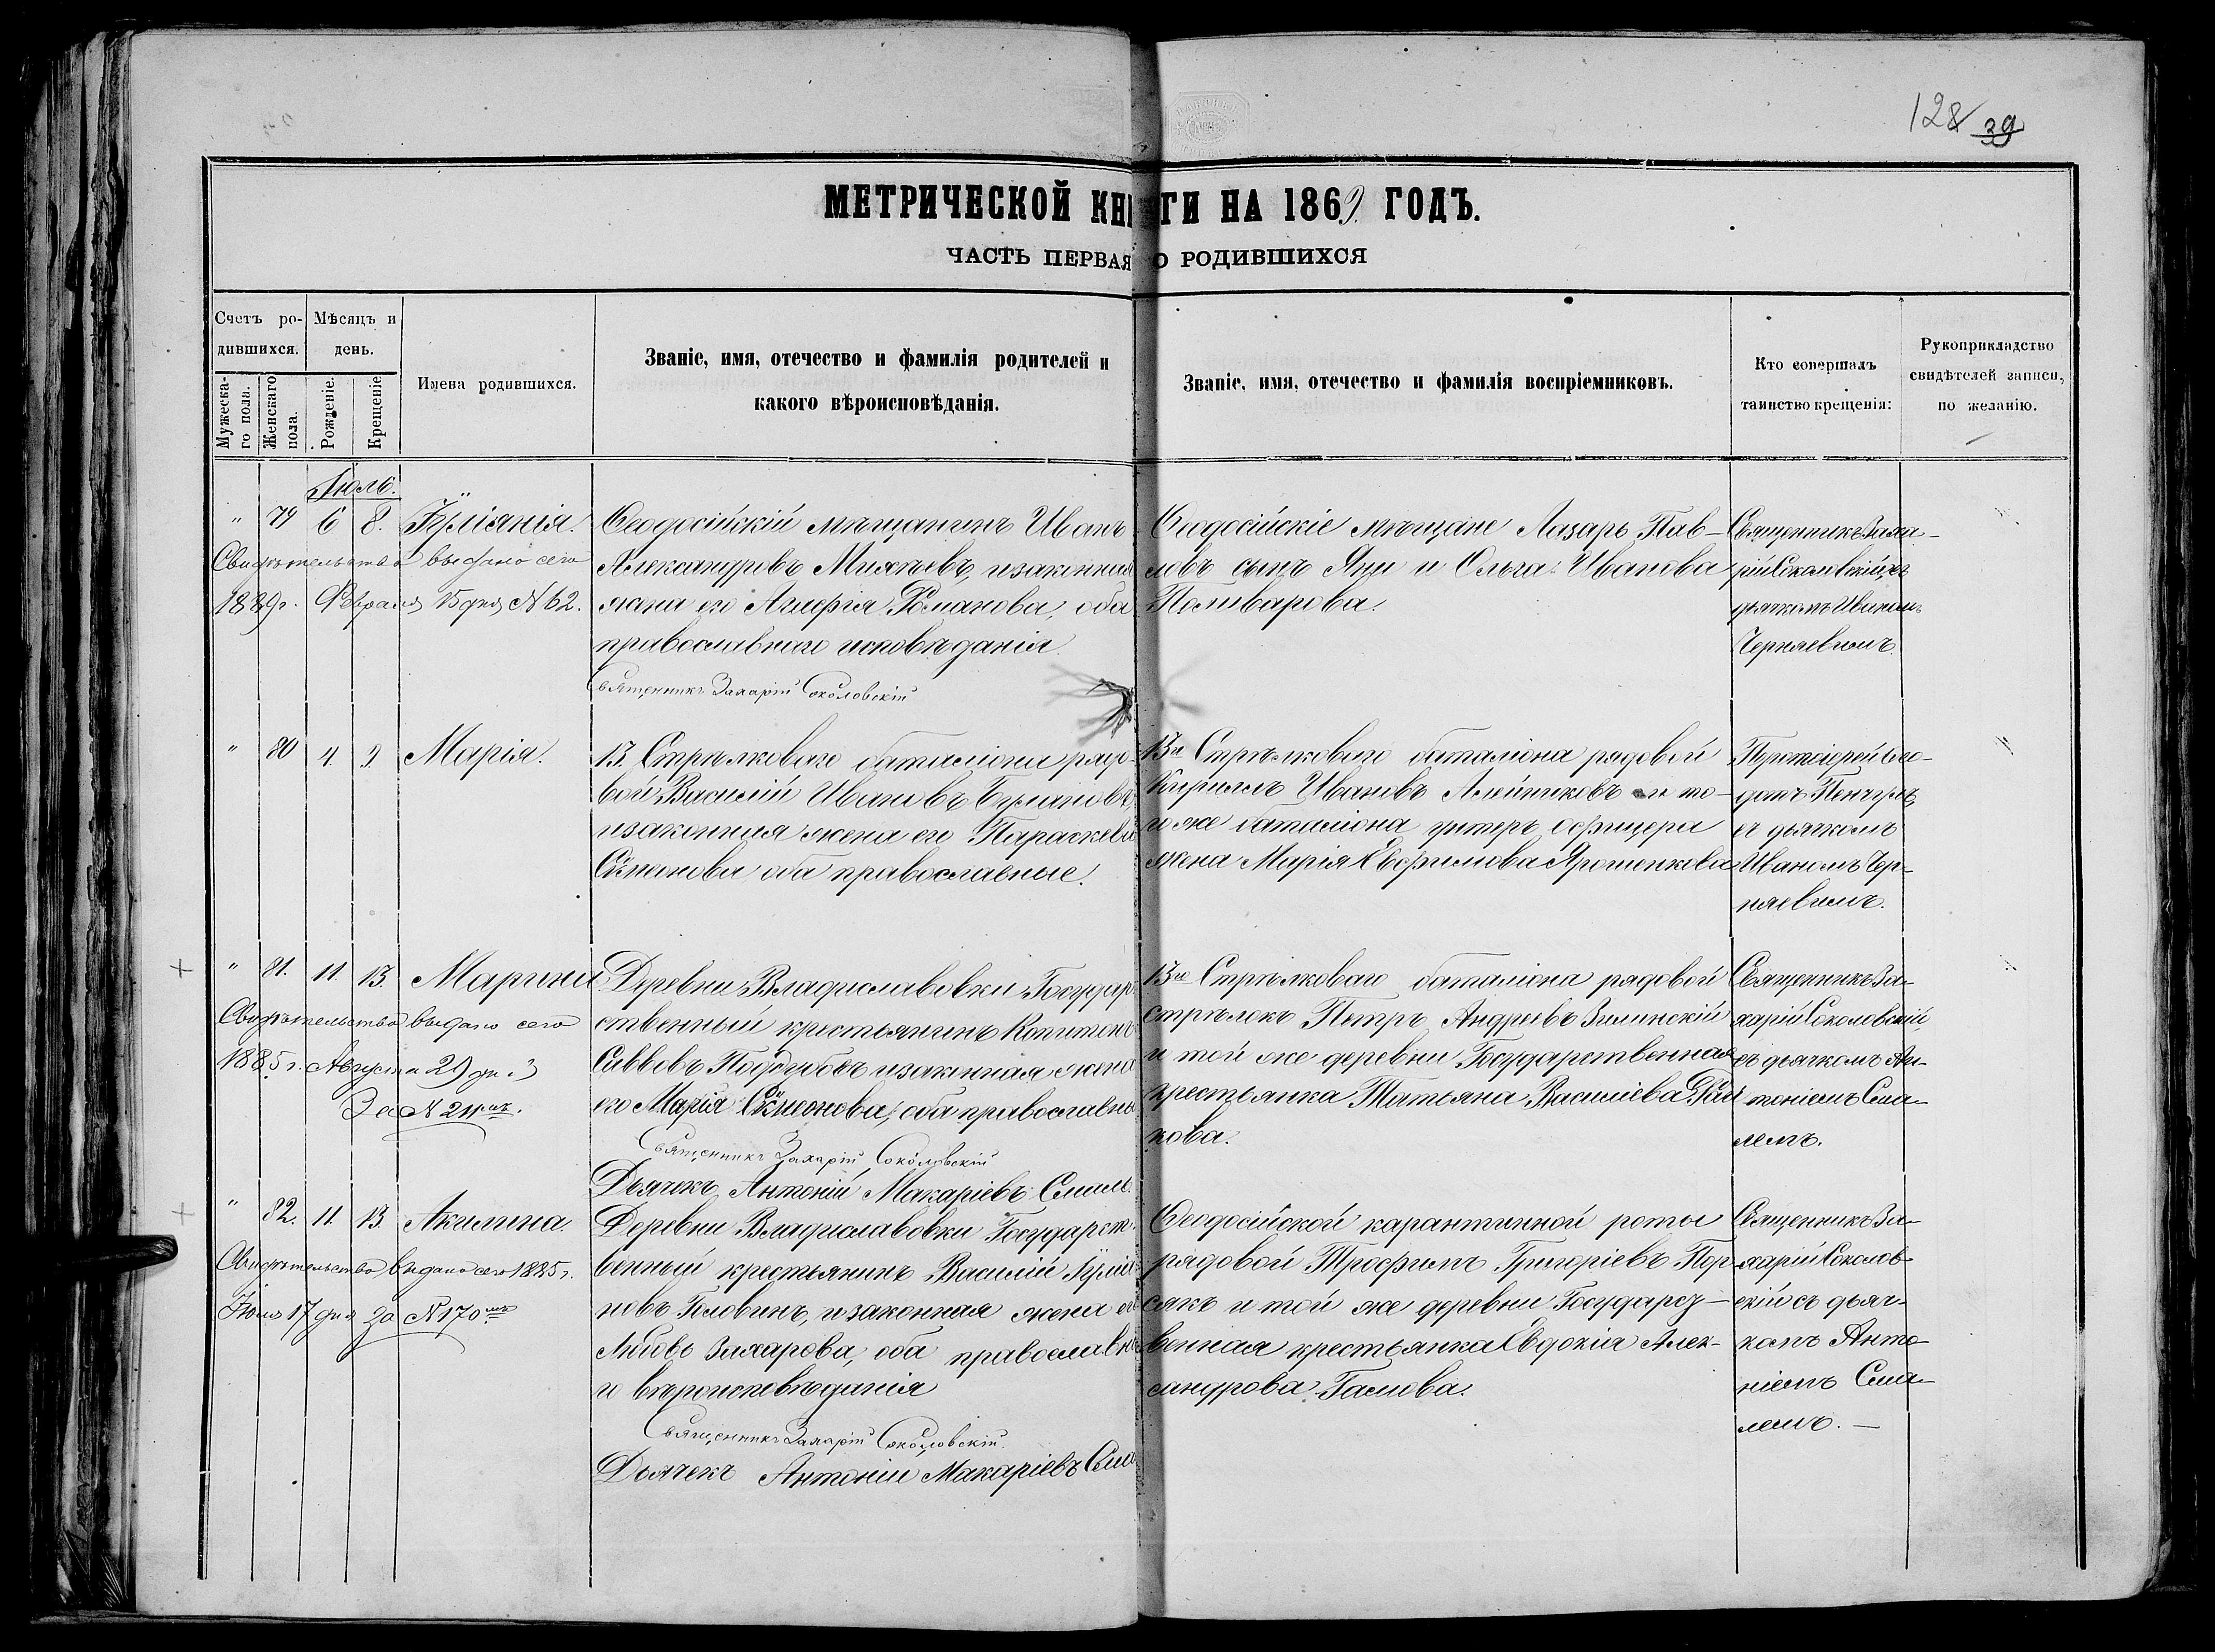 128 39
МЕТРИЧЕСКОЙ КНИГИ НА 1869 ГОДЪ.
ЧАСТЬ ПЕРВАЯ О РОДИВШИХСЯ
Счетъ ро-
дившихся.
Мужеска-
го пола.
Женскаго
пола.
Мѣсяцъ и
день.
Рожденіе.
Крещеніе.
Имена родившихся.
Званіе, имя, отечество и фамилія родителей и
какого вѣроисповѣданія.
Званіе, имя, отечество и фамилія воспріемниковъ.
Кто совершалъ
таинство крещенія:
Рукоприкладство
свидѣтелей записи,
по желанію.
Іюль.
" 79 6 8. Іуліанія.
Свидѣтельство выдано сего
1889 г. Февраля 15 дня N 62.
Ѳеодосійскій мѣщанинъ Иванъ
Александровъ и законная
жена его Романова, оба
православнаго исповѣданія
Священникъ Захарій Соколовскій
Ѳеодосійскіе мѣщане Лазарь Пав-
ловъ сынъ и Ольга Иванова
Поливарова.
Священникъ Заха-
рій Соколовскій съ
дьячкомъ Иваномъ
Черняевымъ.
" 80 4. 9. Марія.
13. Стрѣлковаго баталіона рядо-
вой Василій Ивановъ
и законная жена его Параскева
оба православные.
13го Стрѣлковаго баталіона рядовой
Кириллъ Ивановъ Алейниковъ и то-
го же баталіона унтеръ офицера
жена Марія Евфимова Ярошенкова
Протоіерей
съ дьячкомъ
Иваномъ Чер-
няевымъ.
" 81. 11. 13. Марина
Свидѣтельство выдано сего
1885 г. Августа 29 дня
За N 211мъ.
Деревни Владиславовки Государ-
ственный крестьянинъ Капитонъ
Саввовъ Поддубовъ и законная жена
его Марія Сѵмеонова, оба православны
Священникъ Захарій Соколовскій
Дьячекъ Антоній Макаріевъ
13го Стрѣлковаго баталіона рядовой
стрѣлокъ Петръ Андреевъ Зилинскій
и той же деревни Государственная
крестьянка Татьяна Василіева
кова.
Священникъ За-
харій Соколовскій
съ дьячкомъ Ан-
тоніемъ Сма-
лемъ.
" 82. 11. 13. Акилина.
Свидѣтельство выдано сего 1885 г.
Іюля 17 дня за N 170мъ
Деревни Владиславовки Государст-
венный крестьянинъ Василій Іуліа-
новъ Головинъ, и законная жена его
Любовь Захарова, оба православна-
го вѣроисповѣданія
Священникъ Захарій Соколовскій.
Дьячекъ Антоній Макаріевъ
Ѳеодосійской карантинной роты
рядовой Трофимъ Григоріевъ Пор-
сякъ и той же деревни Государст-
венная крестьянка Евдокія Алек-
сандрова Гамова.
Священникъ За-
харій Соколов-
скій съ дьяч-
комъ Анто-
ніемъ Сма-
лемъ. —